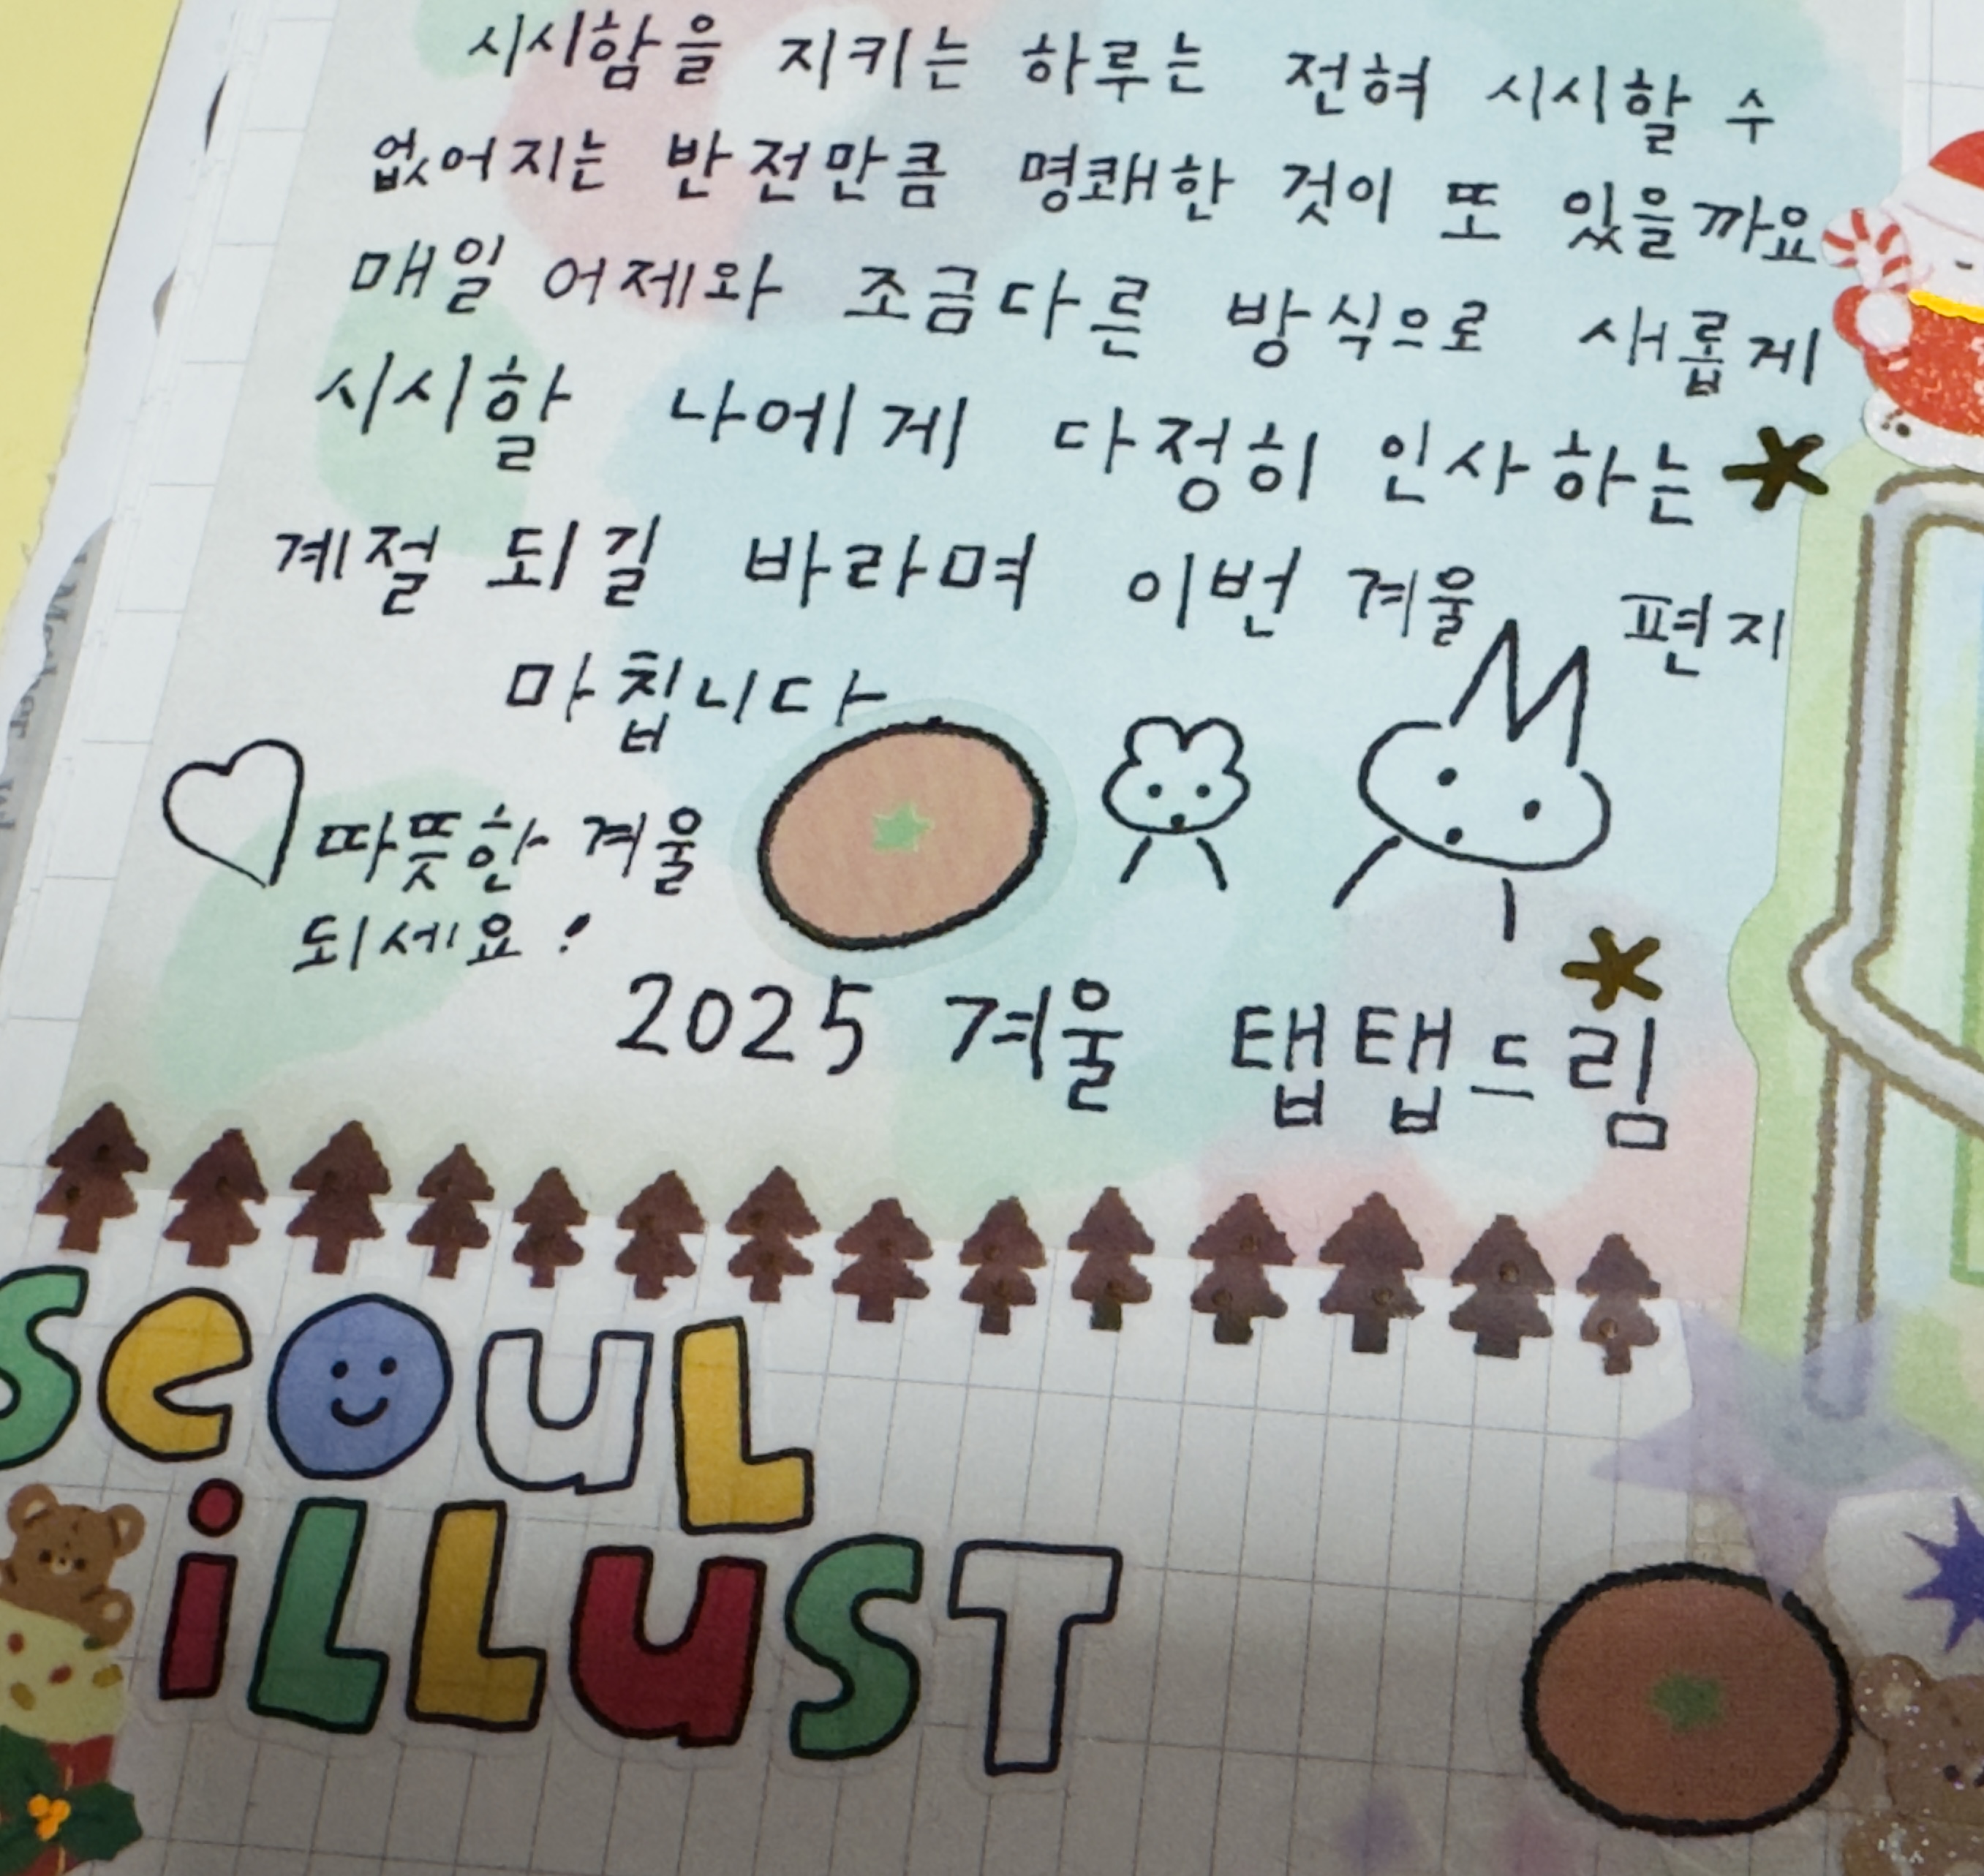 시시함을 지키는 하루는 전혀 시시할 수
없어지는 반전만큼 명쾌한 것이 또 있을까요
매일 어제와 조금다른 방식으로 새롭게
시시할 나에게 다정히 인사하는
계절 되길 바라며 이번 겨울 편지
마칩니다
따뜻한 겨울
되세요!
2025 겨울 탭탭드림
SEOUL
iLLUST